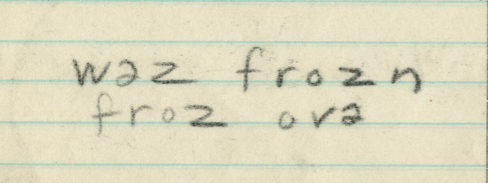 waz frozn
froz ova